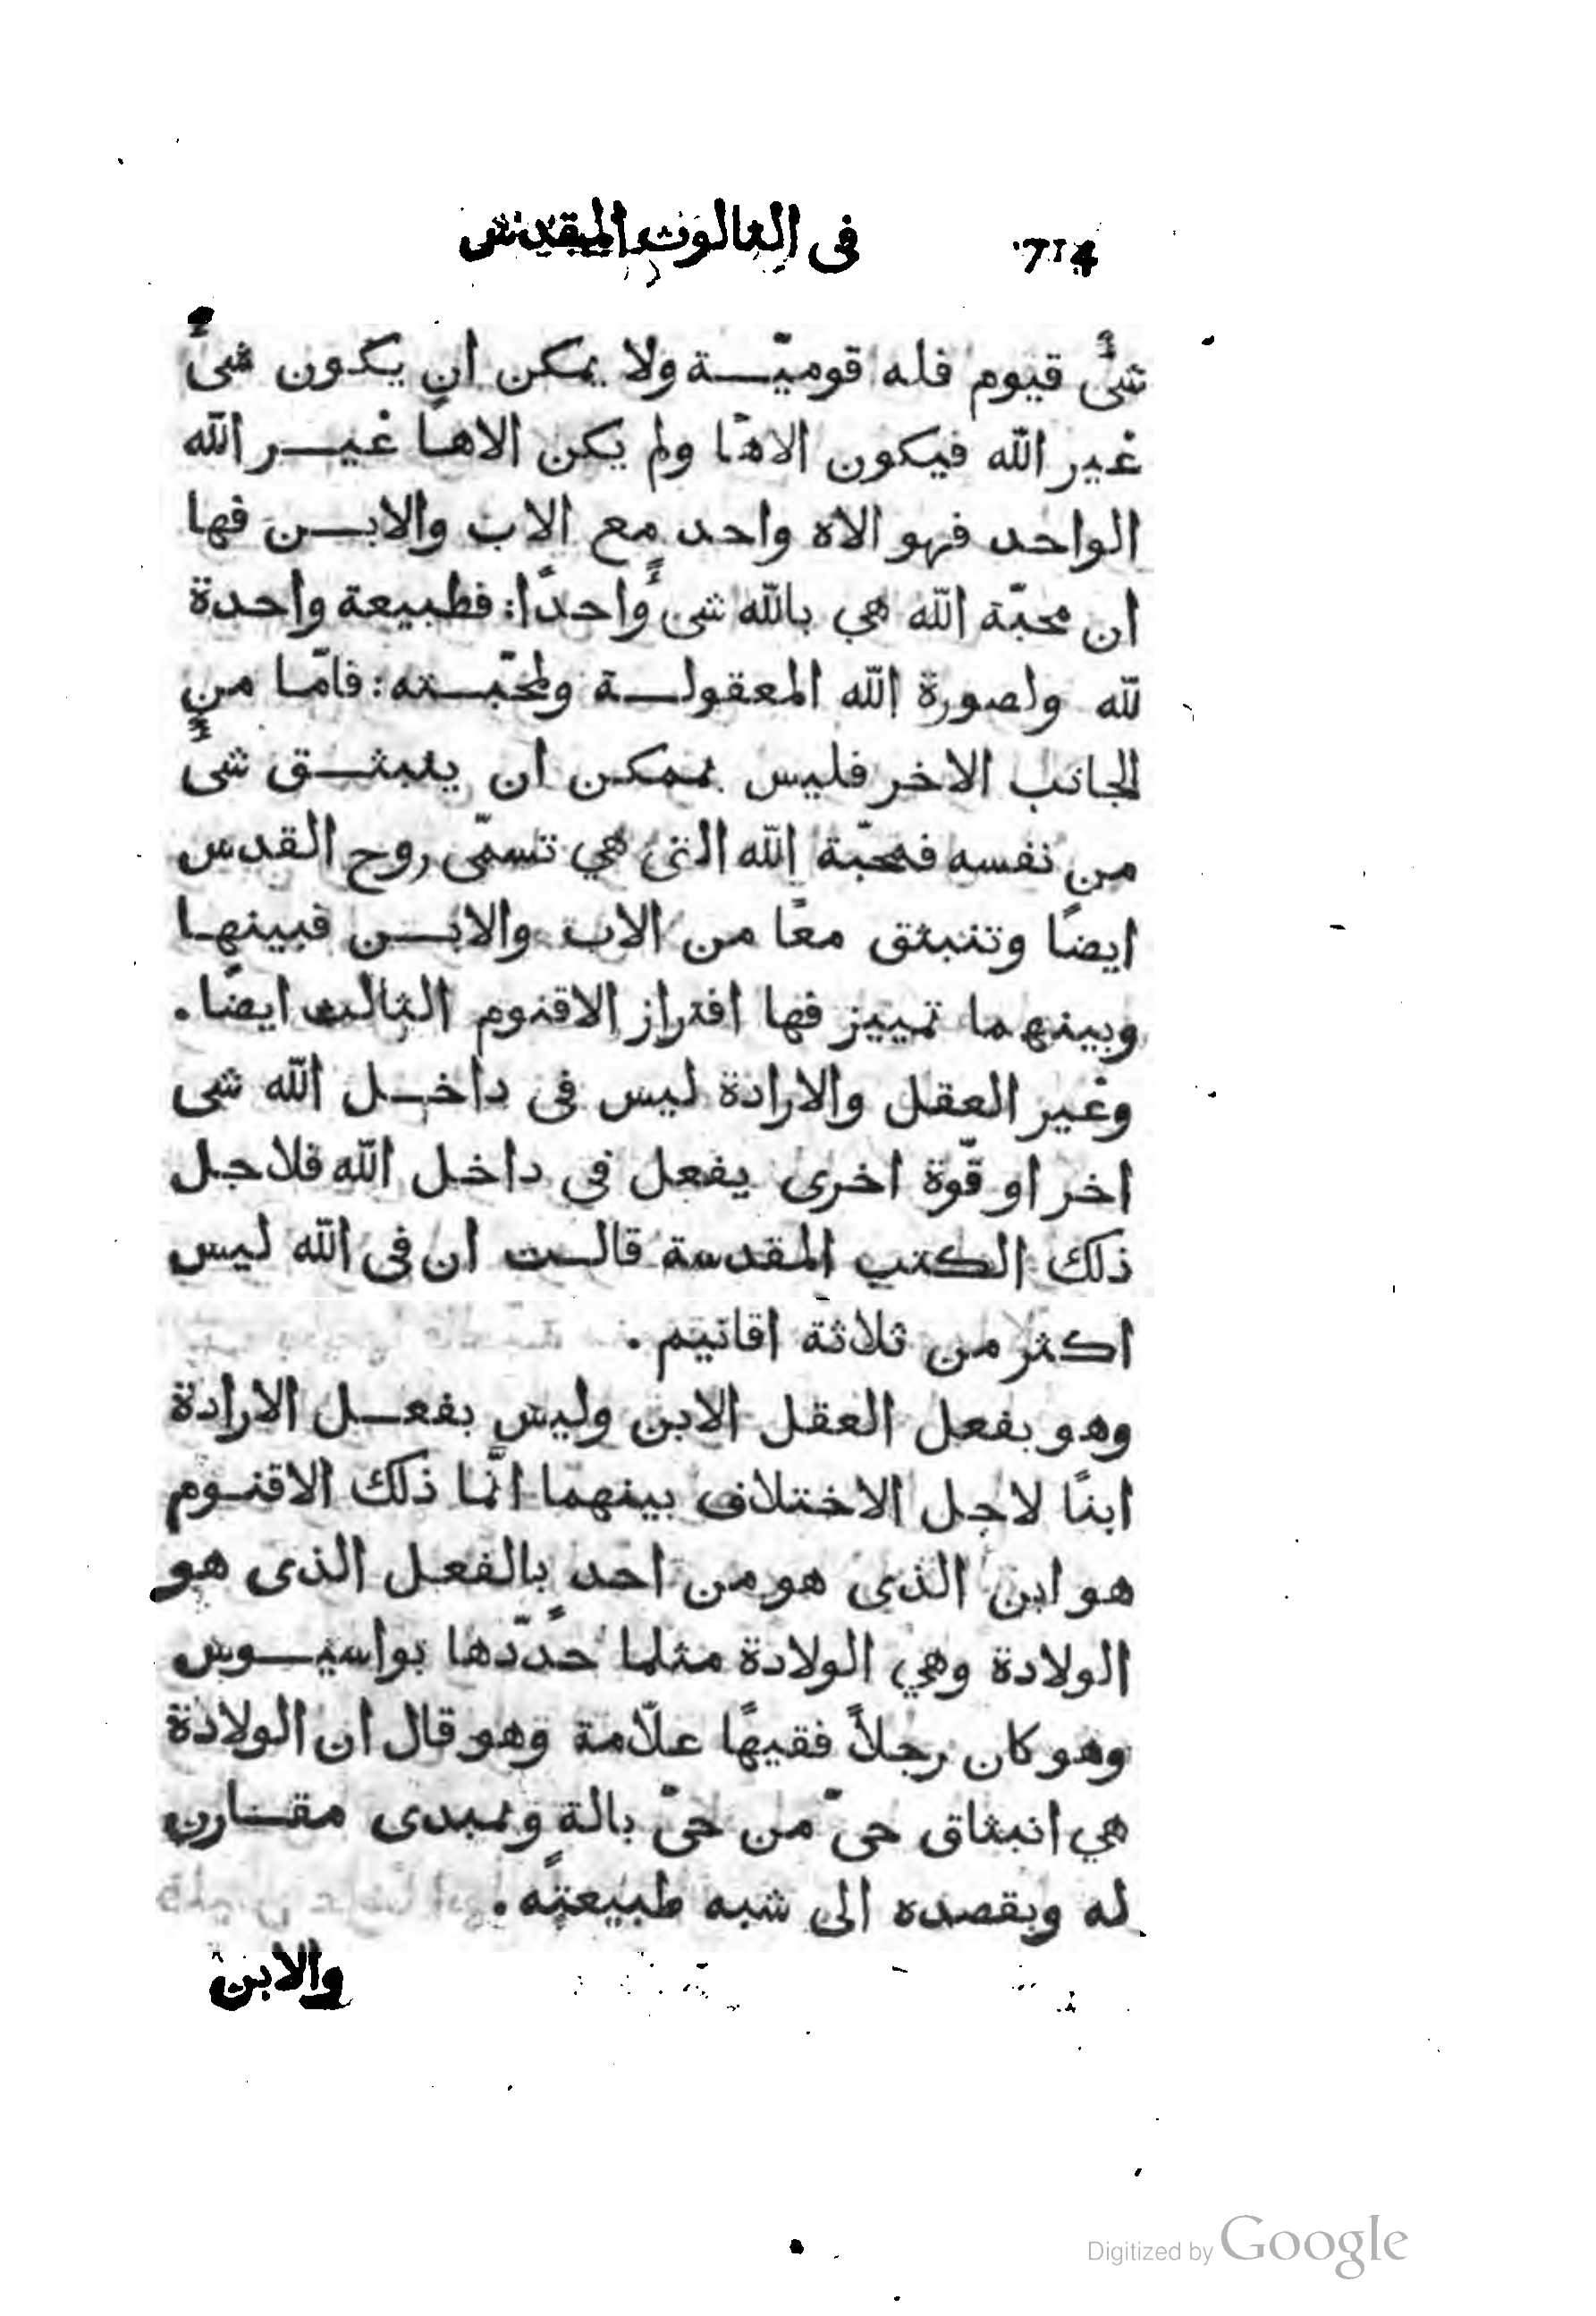 714 فى الثالوث المقدس
شىٌ قيوم فله قوميّة ولا يمكن ان يكون شىٌ
غير اللّه فيكون الاهًا ولم يكن الاهًا غير اللّه
الواحد فهو الاه واحد مع الاب والابن فها
ان محبّة اللّه هي باللّه شىٌ واحدًا: فطبيعة واحدة
للّه ولصورة اللّه المعقولة ولمحبّته: فامّا من
الجانب الاخر فليس بممكن ان ينبثق شىٌ
من نفسه فمحبّة اللّه التى هي تسمّى روح القدس
ايضًا وتنبثق معًا من الاب والابن فبينها
وبينهما تمييز فها افتراز الاقنوم الثالث ايضًا.
وغير العقل والارادة ليس فى داخل اللّه شى
اخر او قوّة اخرى يفعل فى داخل اللّه فلاجل
ذلك الكتب المقدسة قالت ان فى اللّه ليس
اكثر من ثلاثة اقانيم.
وهو بفعل العقل الابن وليس بفعل الارادة
ابنًا لاجل الاختلاف بينهما انّما ذلك الاقنوم
هو ابن الذى هو من احد بالفعل الذى هو
الولادة وهي الولادة مثلما حدّدها بواسيوس
وهو كان رجلاً فقيهًا علاّمة وهو قال ان الولادة
هي انبثاق حىّ من حىّ بالة وبمبدى مقارن
له وبقصده الى شبه طبيعته.
والابن
Digitized by Google